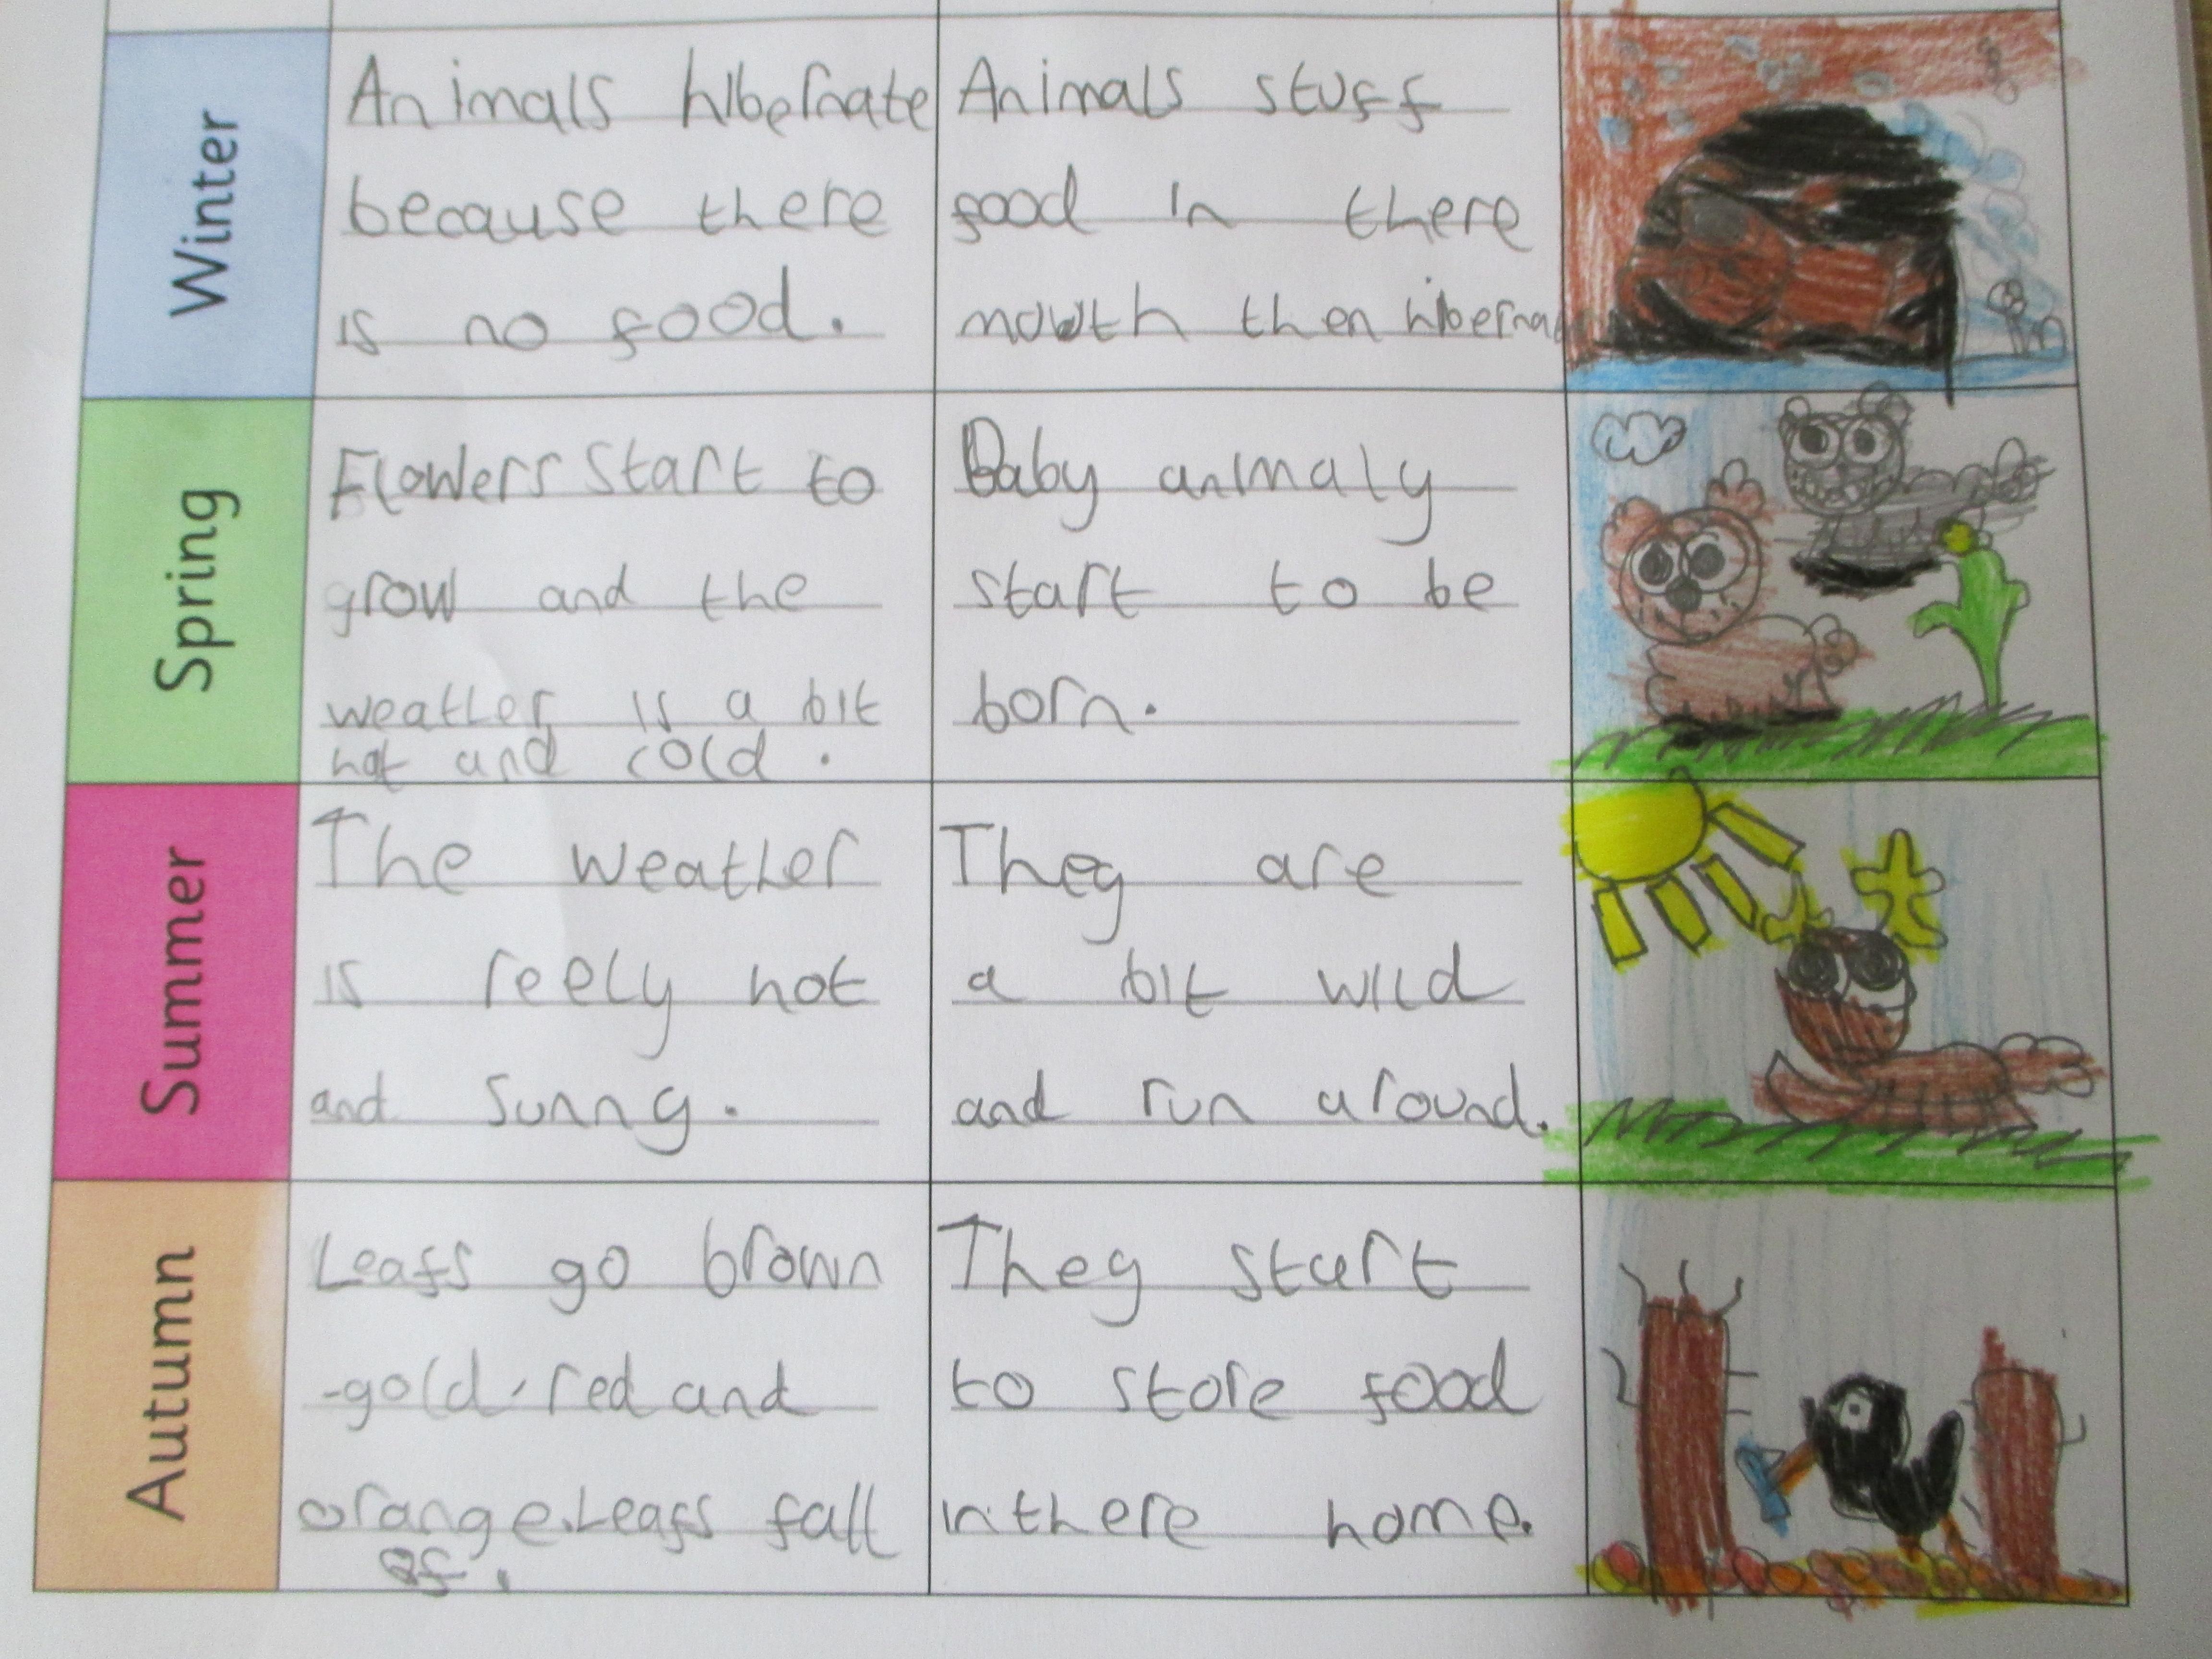 Winter
Animals hibernate
because there
is no food.
Animals stuff
food in there
mouth then hiberna
Spring
Flowers start to
grow and the
weather is a bit
hot and cold.
Baby animaly
start to be
born.
Summer
The weather
is reely hot
and sunny.
They are
a bit wild
and run around.
Autumn
Leafs go brown
-gold, red and
orange. Leafs fall
of.
They start
to store food
in there home.